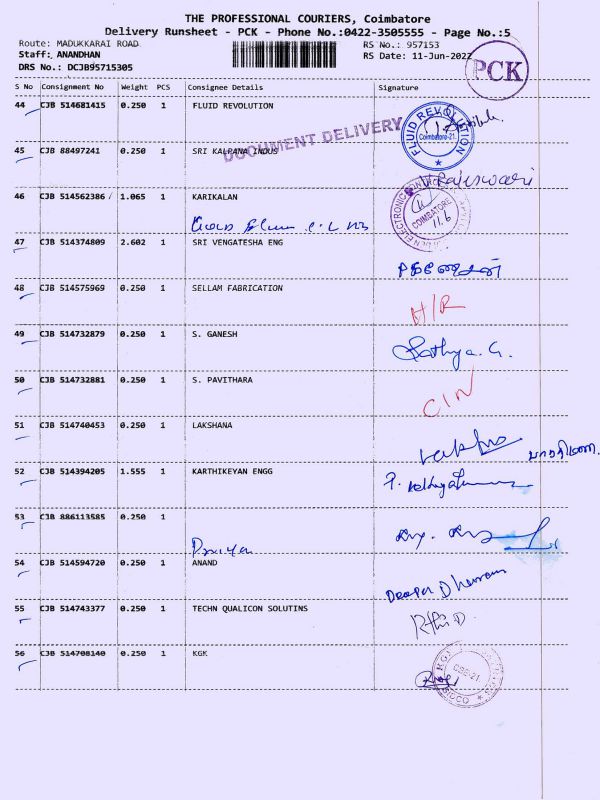 THE PROFESSIONAL COURIERS, Coimbatore
Delivery Runsheet - PCK - Phone No.:0422-3505555 - Page No.:5
Route: MADUKKARAI ROAD
RS No.: 957153
Staff: ANANDHAN
RS Date: 11-Jun-2022
DRS No.: DCJB95715305
PCK
S No Consignment No Weight PCS Consignee Details Signature
44 CJB 514681415 0.250 1 FLUID REVOLUTION
FLUID REVOLUTION Coimbatore-21.
DOCUMENT DELIVERY
45 CJB 88497241 0.250 1 SRI KALPANA INDUS
V. Rajeswari
46 CJB 514562386 1.065 1 KARIKALAN
COIMBATORE
11.6
47 CJB 514374809 2.602 1 SRI VENGATESHA ENG
48 CJB 514575969 0.250 1 SELLAM FABRICATION
H/R
49 CJB 514732879 0.250 1 S. GANESH
Sathya. G.
50 CJB 514732881 0.250 1 S. PAVITHARA
C/N
51 CJB 514740453 0.250 1 LAKSHANA
52 CJB 514394205 1.555 1 KARTHIKEYAN ENGG
53 CJB 886113585 0.250 1
54 CJB 514594720 0.250 1 ANAND
55 CJB 514743377 0.250 1 TECHN QUALICON SOLUTINS
56 CJB 514708140 0.250 1 KGK
SIDCO